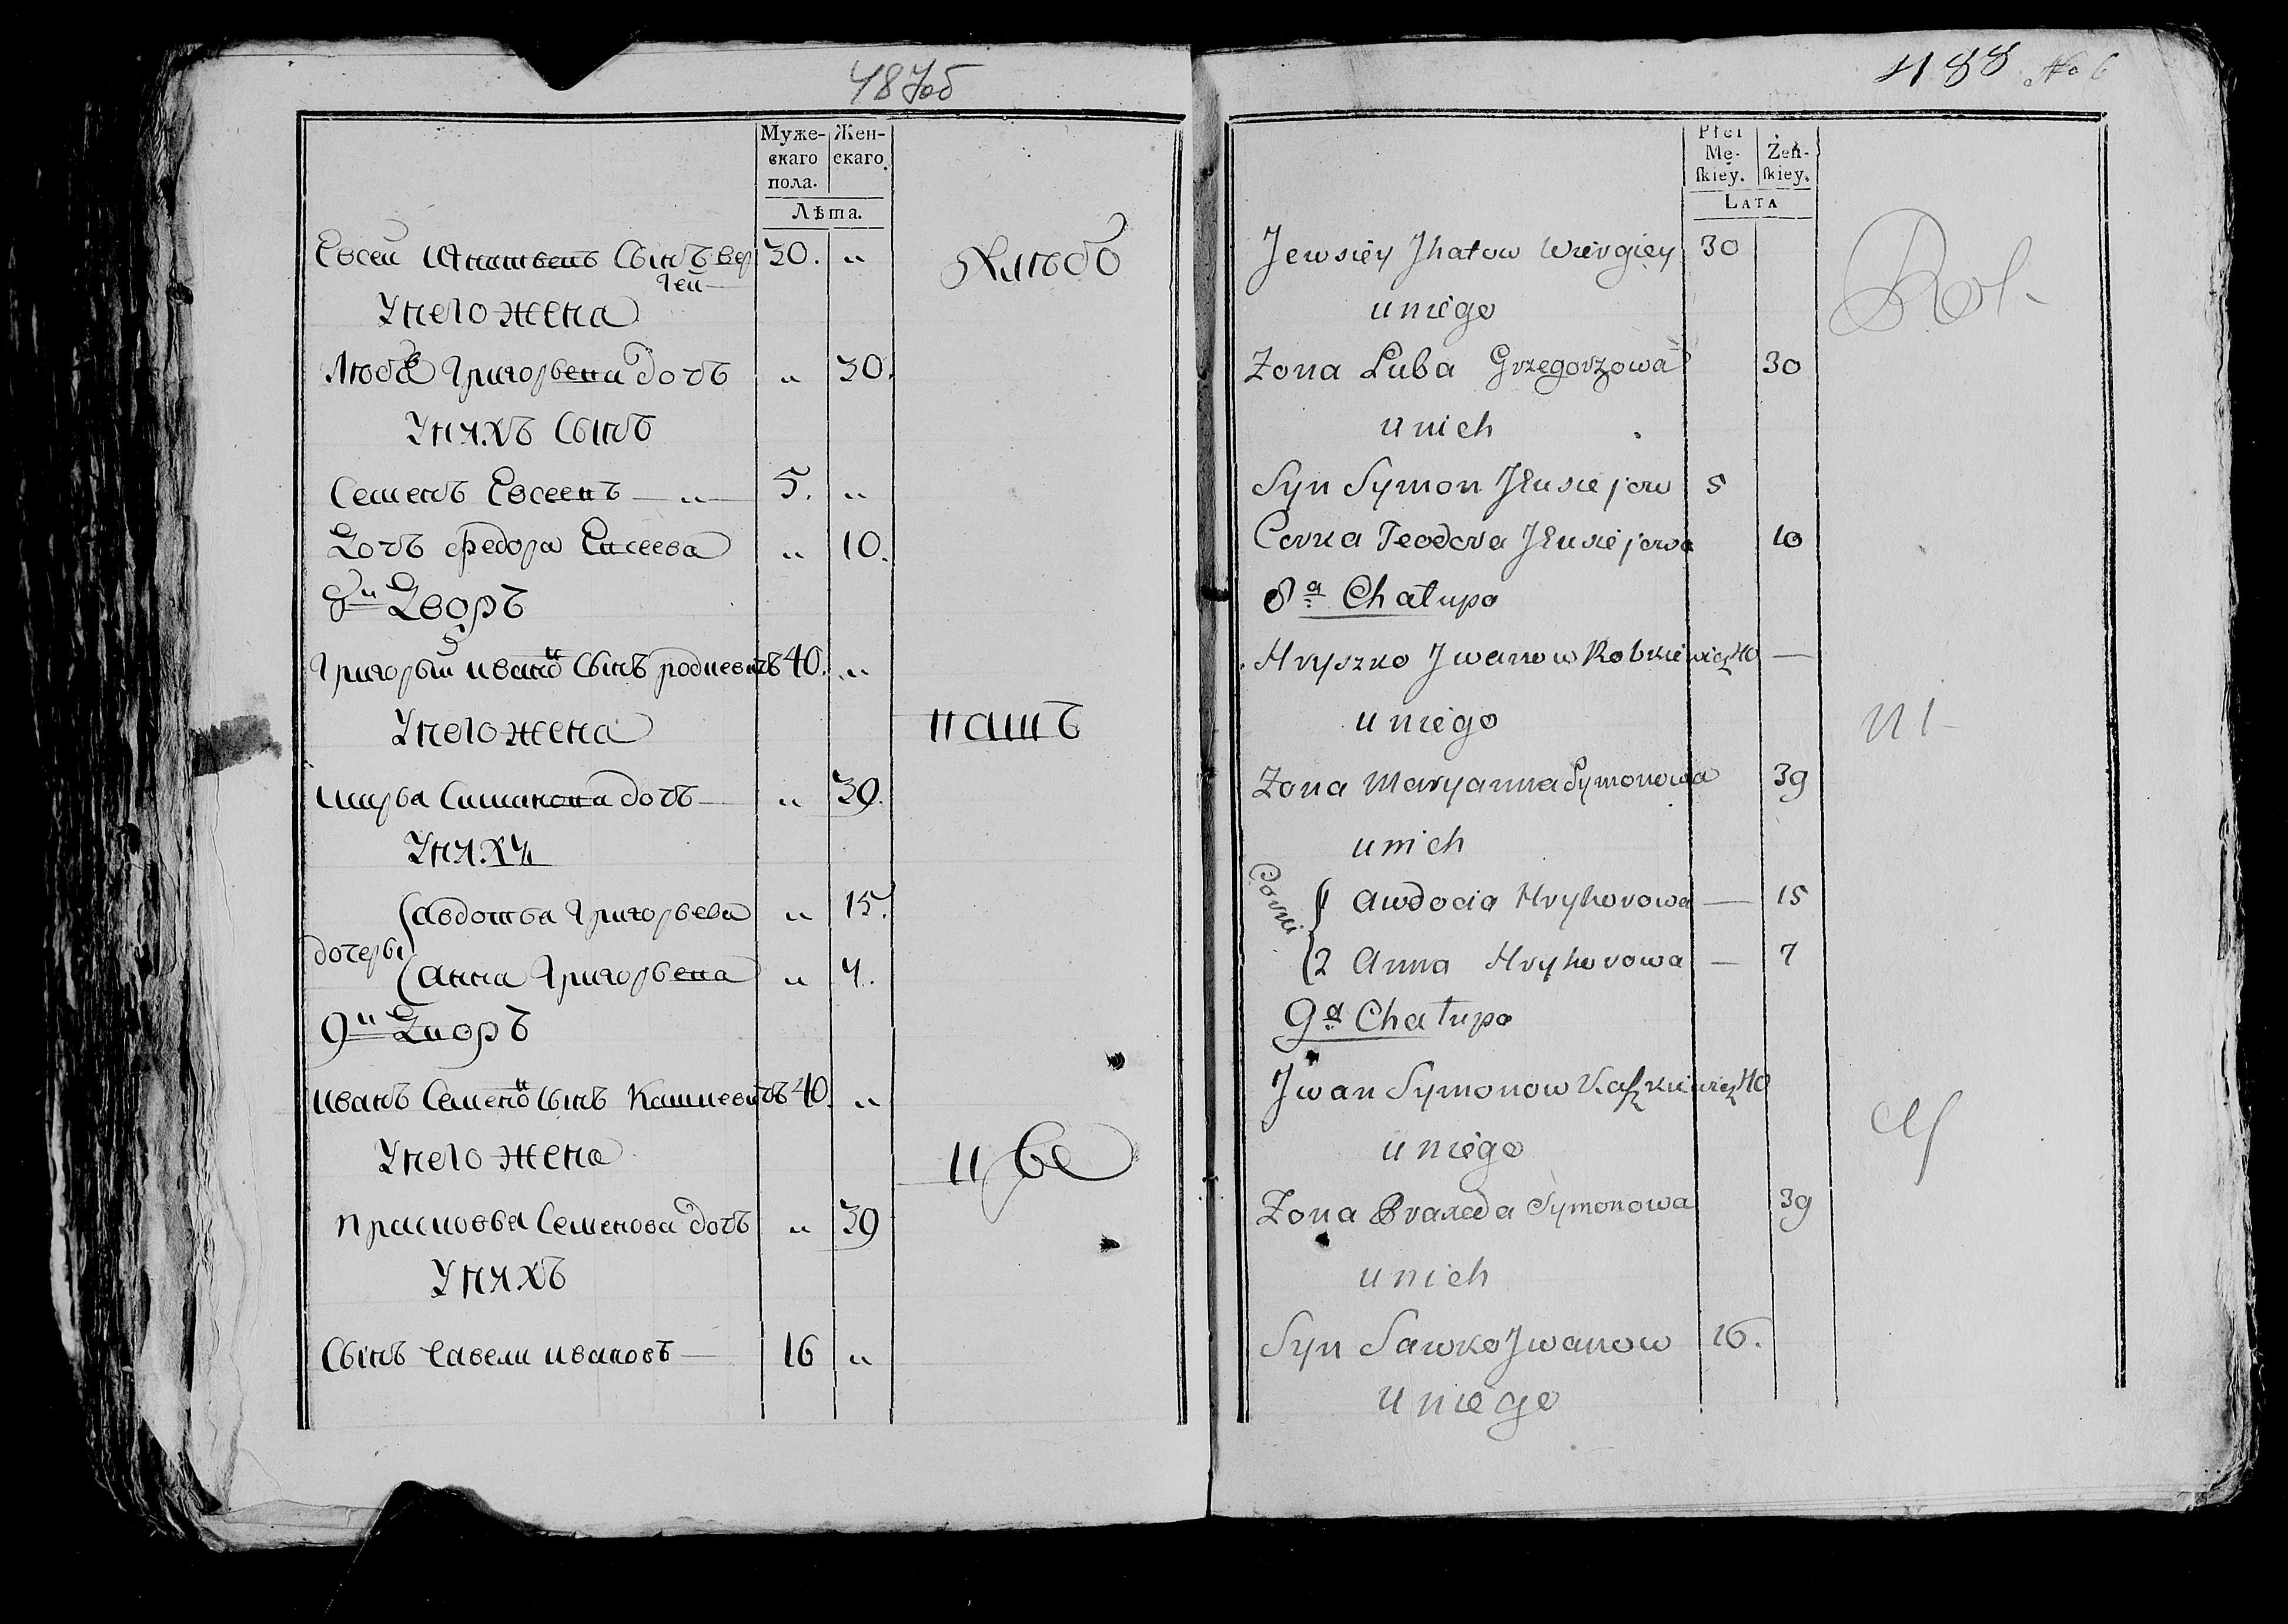 487об
Муже- Жен-
скаго скаго
пола.
Лѣта.
Евсеи Игнатьевъ Сынъ Вер 30. "
гей
У него жена
Люба Григорьева дочь " 30.
У нихъ Сынъ
Семенъ Евсеевъ — " — 5. "
Дочь Федора Евсеева " 10.
8й Дворъ
Григорый Иванов Сынъ 40. "
У него жена
Марья Симанова дочь — " 39.
У нихъ
Авдотья Григорьева " 15.
дочерьи
Анна Григорьева " 7.
9й Дворъ
Иванъ Семенов Сынъ Кашкевичъ 40. "
У него жена
Прасковья Семенова дочь " 39
У нихъ
Сынъ Савели Ивановъ — 16 "
Хлѣбо
паше
488 No 6
Płci
Mę- Żeń-
ſkiey. ſkiey.
LATA
Jewsiéy Jhatow Wiérgiey 30
u niégo
Zona Luba Grzegorzowa 30
u nich
Syn Symon Jewsiejow 5
Corka Teodora Jewsiejowa 10
8a Chałupa
Hryszko Jwanow 40 —
u niego
Zona Maryanna Symonowa 39
u nich
Corki
1 Awdocia Hryhorowa — 15
2 Anna Hryhorowa — 7
9a Chałupa
Jwan Symonow Kaſzkiewicz 40
u niégo
Zona Praxeda Symonowa 39
u nich
Syn Sawko Jwanow 16.
u niego
Rol-
ni-